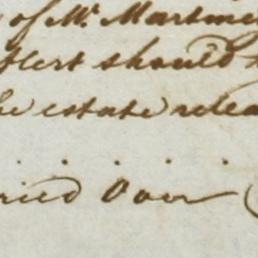 of Mr. Martme
should
he estate relea
ried Over